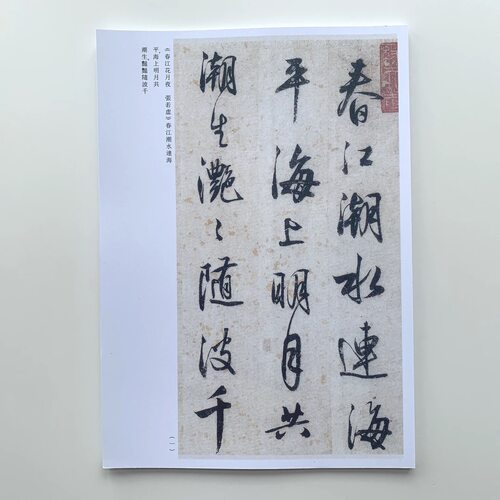 春江潮水連海
平海上明月共
潮生灧〻随波千
《春江花月夜　張若虛》春江潮水連海
平、海上明月共
潮生、灩灩隨波千
(一)